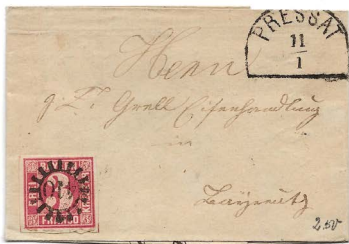 PRESSAT
11
1
Herrn
Grell Eisenhandlung
in
Bayreuth
2.50